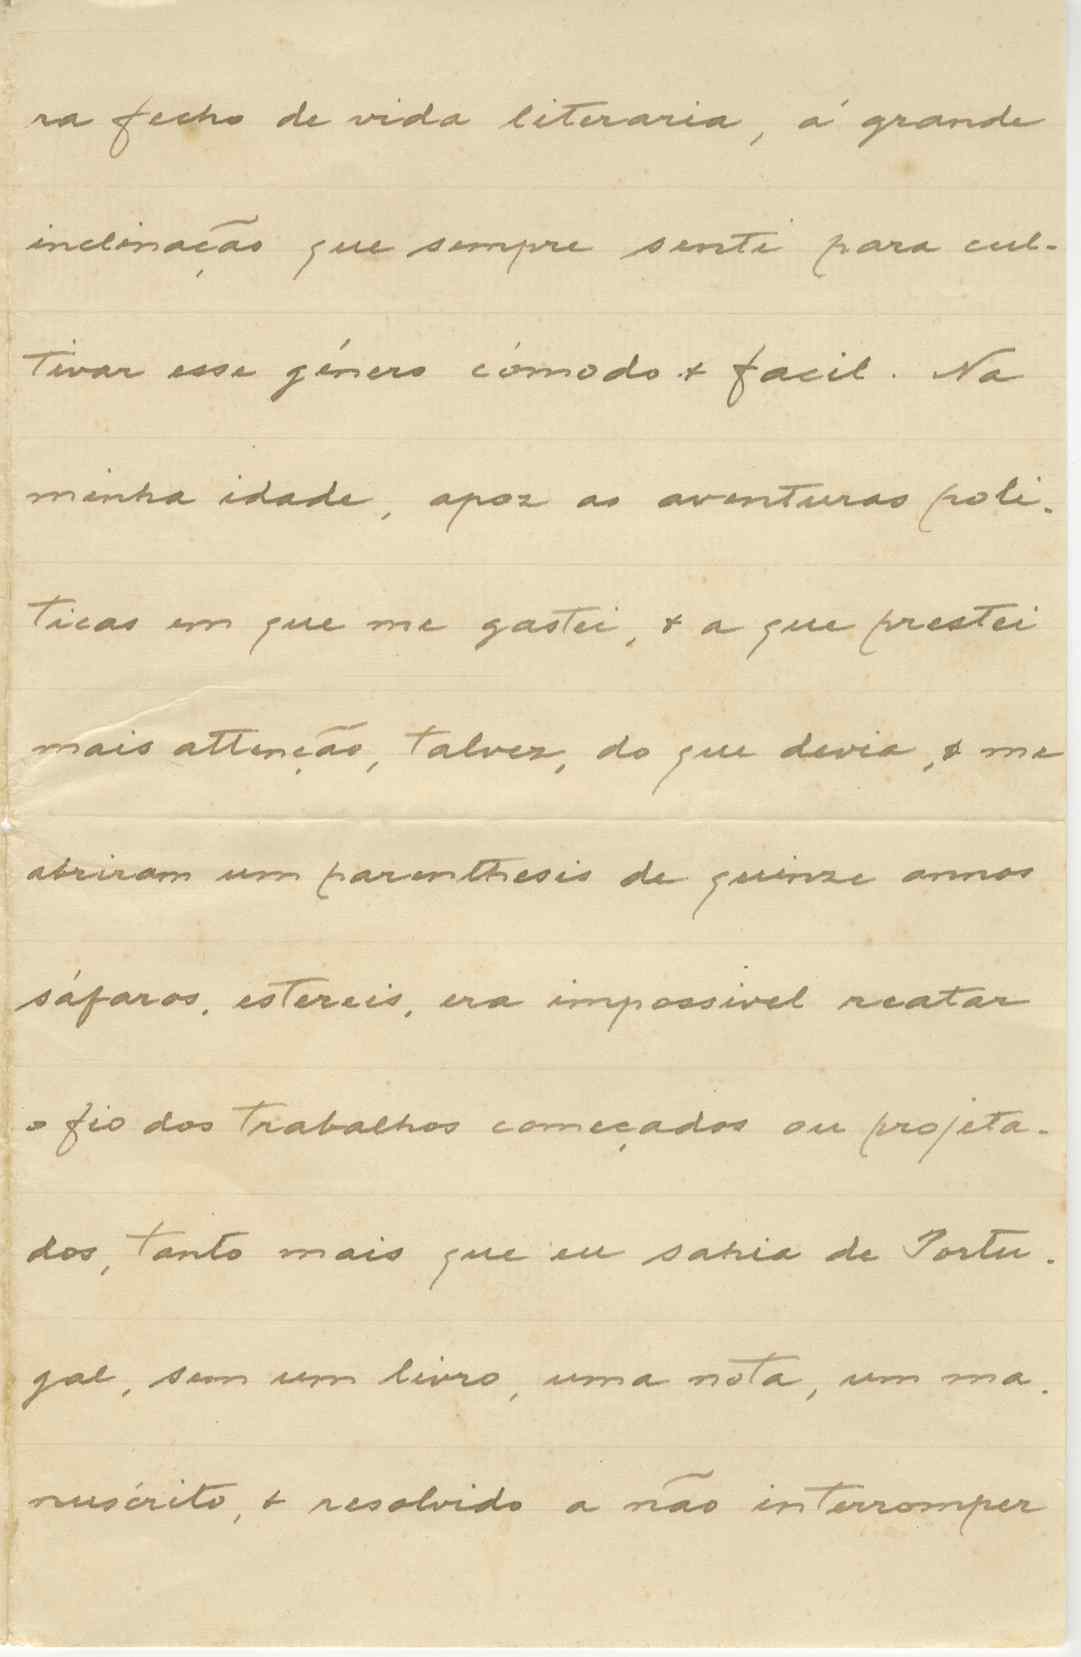 ra fecho de vida literaria, á grande
inclinação que sempre senti para cul-
tivar esse género cómodo & facil. Na
minha idade, apoz as aventuras poli-
ticas em que me gastei, & a que prestei
mais attenção, talvez, do que devia, & me
abriram um parenthesis de quinze annos
sáfaros, estereis, era impossivel reatar
o fio dos trabalhos começados ou projeta-
dos, tanto mais que eu sahia de Portu-
gal, sem um livro, uma nota, um ma-
nuscrito, & resolvido a não interromper